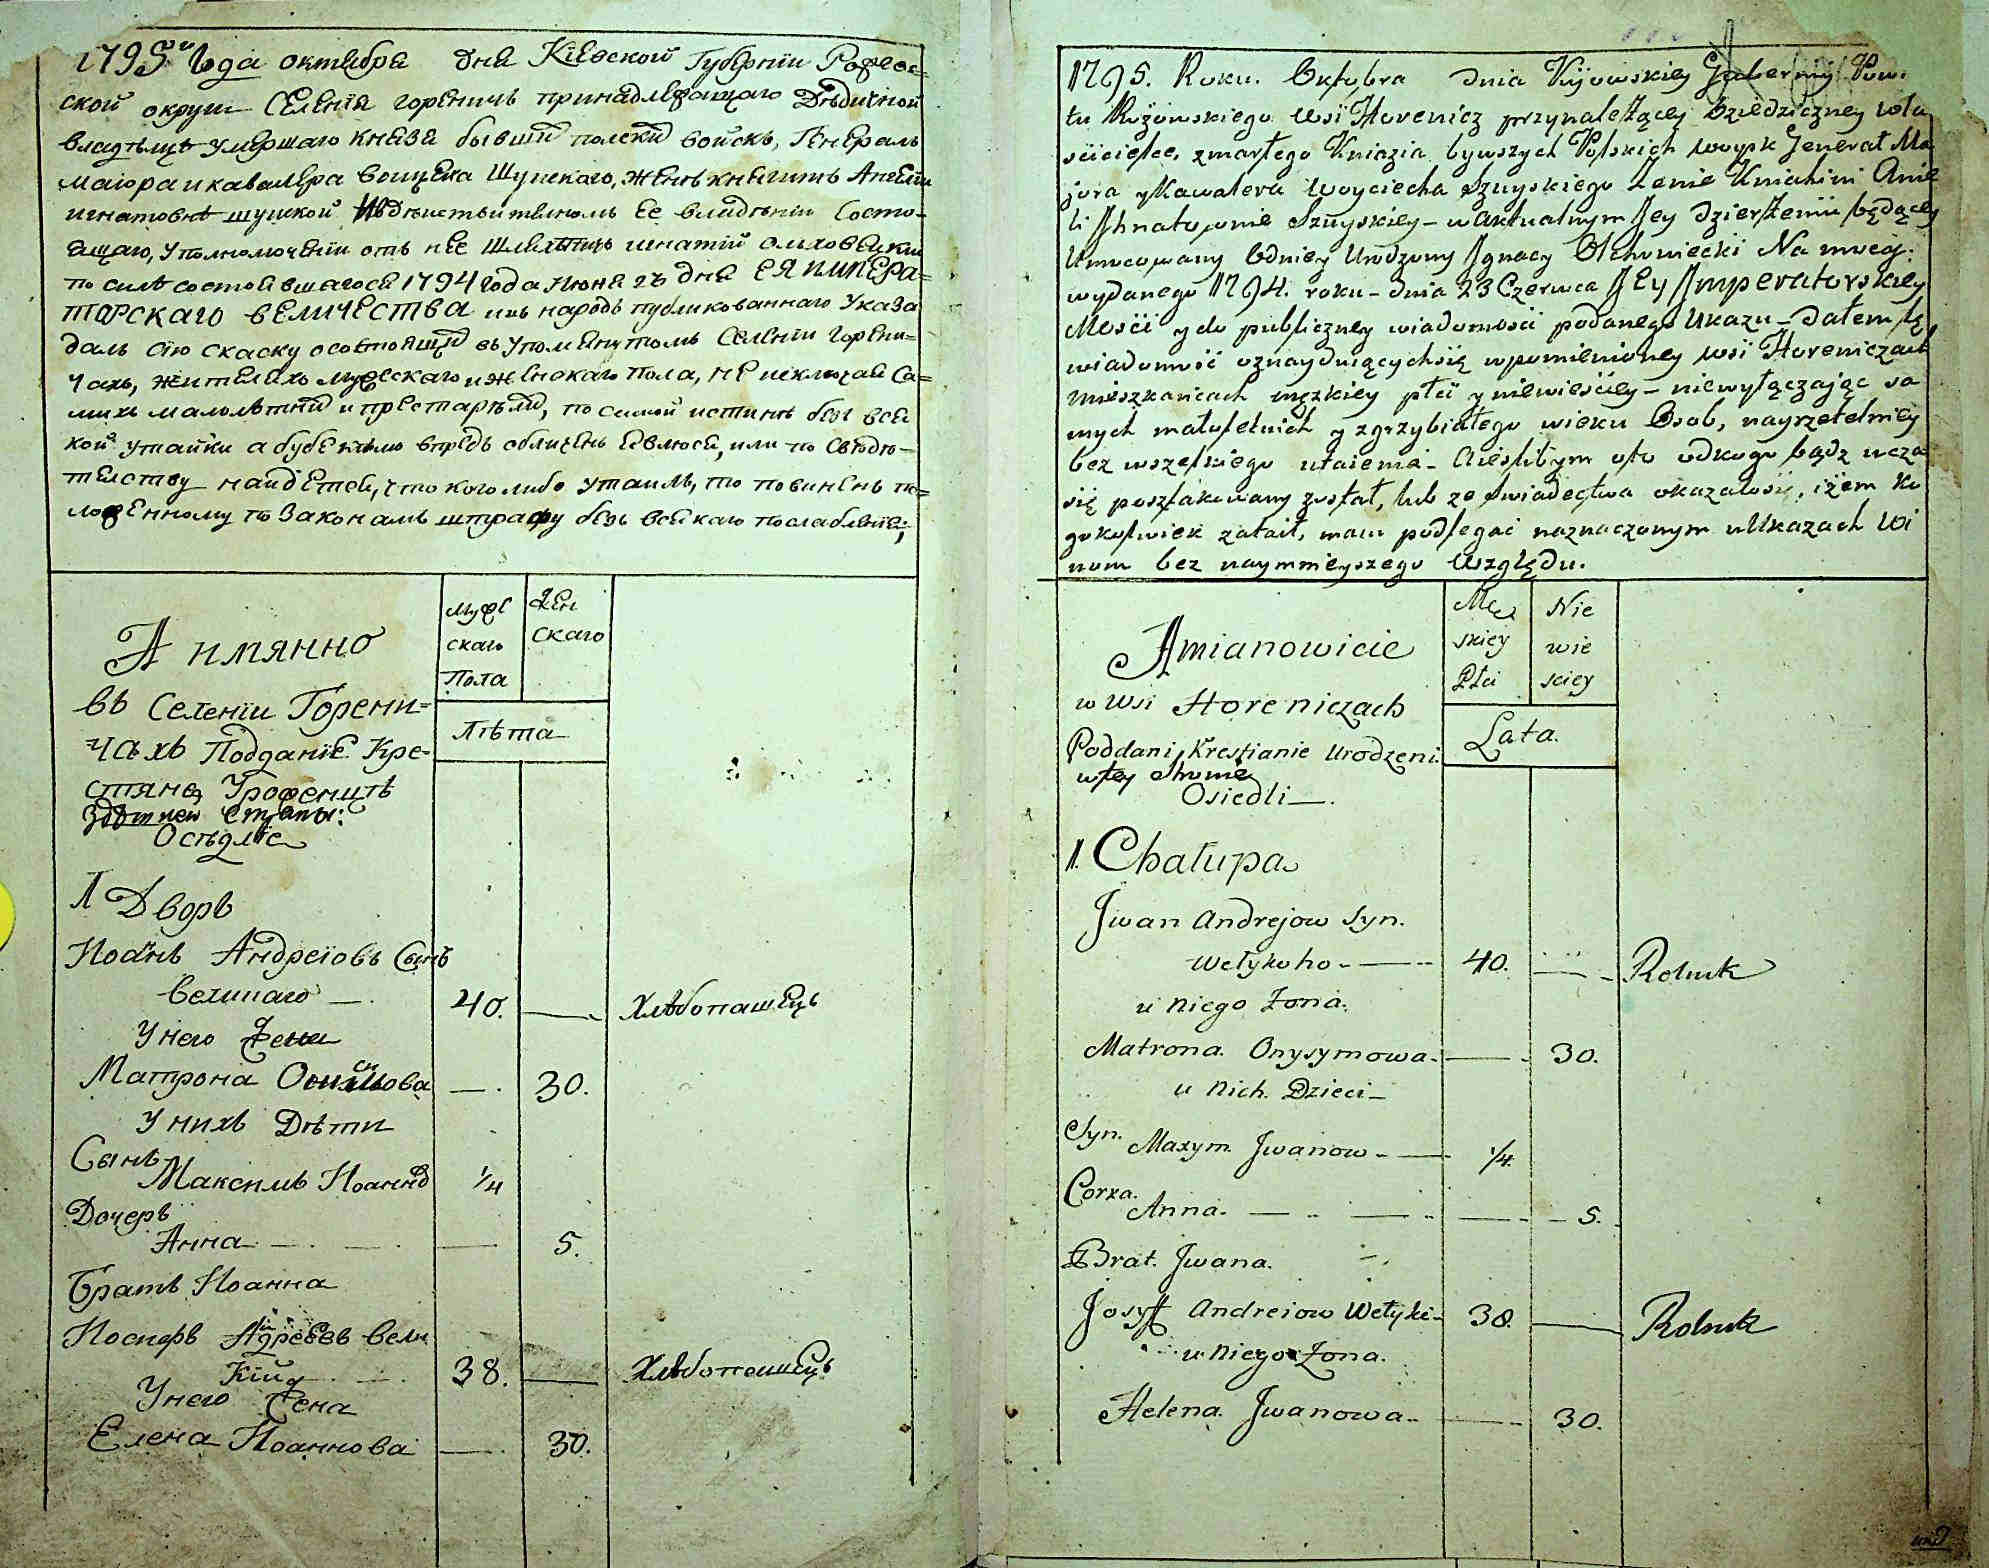 1795го Года октября дня Кіевской Губерніи Рожев=
ской округи Селенія горѣничь принадлежащаго Дѣдичной
владѣлцѣ умершаго князя бывшихъ полскихъ войскъ, Генералъ
маіора и кавалера воицеха Шуискаго, женѣ княгинѣ Анелии
игнатовнѣ шуиской въ дѣиствителномъ Ее владѣніи Состо-
ящаго, уполномочений отъ нее шляхтичь игнатій олховецкий
по силѣ состоявшагося 1794 года июня 23 дня ЕЯ ИМПЕРА=
ТОРСКАГО ВЕЛИЧЕСТВА и въ народъ публикованнаго Указа
далъ сію скаску о состоящихъ въ упомянутомъ Селеніи горени=
чахъ, жителяхъ мужескаго и женскаго пола, не исключая Са=
михъ малолѣтнихъ и престарѣлихъ, по самой истиннѣ безъ вся
кой утайки а буде кѣмъ впредь обличенъ явлюся, или по Свѣдѣ-
телству наидется, что кого либо утаилъ, то повиненъ по=
ложенному по Законамъ штрафу безъ всякаго послабленія;
Мужс
скаго
Пола
Жен
скаго
А имянно
въ Селеніи Горени=
чахъ Подданіе Кре-
стяне, Урожениціѣ
здѣшней страны:
Осѣдліе
Лѣта
1 Дворъ
Иоанъ Андреіовъ Сынъ
великаго —. 40. — Хлѣбопашецъ
У него жена
Матрона Онисимова — . 30.
У нихъ Дѣти
Сынъ
Максимъ Иоаннов 1/4
Дочерь
Анна. — . — . — 5.
Братъ Иоанна
Иосифъ Андреевъ вели
Кій — . 38. — Хлѣбопашецъ
У него жена
Елена Иоаннова — . 30.
1795. Roku. Oktobra dnia Kijowskiey Gubernij Powi
tu Rożowskiego wsi Horenicz przynależącey dziedziczney wła
ścicielce, zmarłego Kniazia bywszych Polskich woysk Jenerał Ma
jora y Kawalera Woyciecha Szuyskiego Żenie Kniahini Anie
li Jhnatownie Szuyskiey — w aktualnym Jey dzierżeniu będącey
Umocowany Odniey Urodzony Jgnacy Olchowiecki Na mocy:
wydanego 1794. roku — dnia 23 Czerwca JEy Jmperatorskiey
Mości y do publiczney wiadomości podanego Ukazu — Dałem tę
wiadomość oznayduiących się wpomienioney wsi Horeniczach
Mieszkańcach męzkiey płci y niewieściey — niewyłączając sa
mych małoletnich y zgrzybiałego wieku Osob, nayrzetelniey
bez wszelkiego utaienia — Aieslibym oto odkogo bądz wcza
się poszlakowany został, lub ze świadectwa okazałosię, iżem ko
gokolwiek zataił, mam podlegać naznaczonym w Ukazach Wi
nom bez naymnieyszego Względu.
Męz
skiey
Płci
Nie
wie
sciey
Amianowicie
w Wsi Horeniczach
Poddani, Krestianie Urodzeni.
w tey stronie
Osiedli —.
Lata.
1. Chałupa
Jwan Andrejow Syn.
Wełykoho - — -- 40. — - Rolnik
u niego Żona.
Matrona. Onysymowa. — - 30.
u nich. Dzieci —
Syn. Maxym Jwanow - — 1/4.
Corka. Anna. — .. — .. — - 5.
Brat. Jwana.
Josyff Andreiow Wełyki- 38. — Rolnik
u niego Żona.
Helena. Jwanowa.. — - 30.